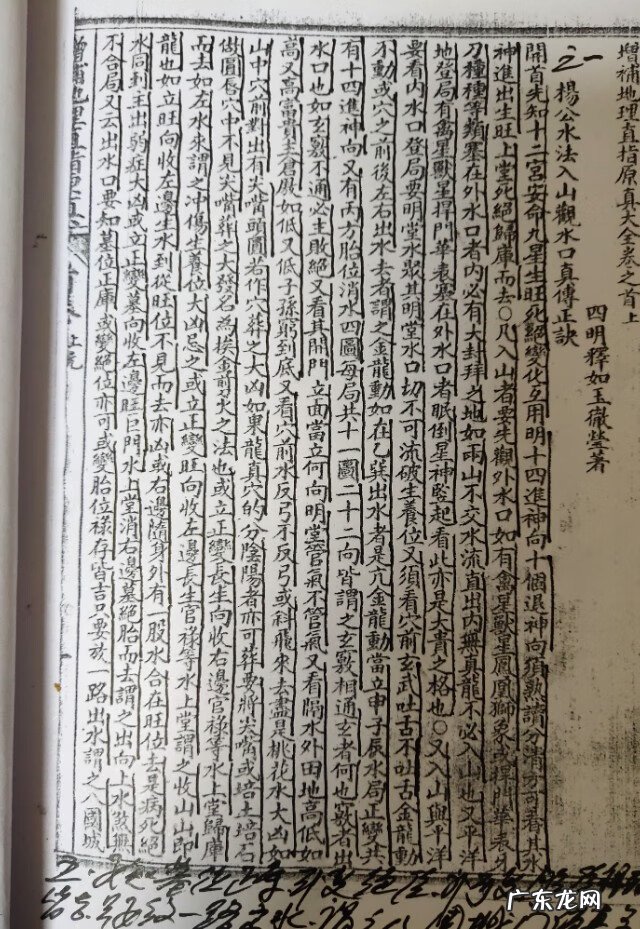 增補地理直指原真大全卷之首上
四明釋如玉徹瑩著
之一 楊公水法入山觀水口真傳正訣
開首先知十二宮安命九星生旺死絕變化互用明十四進神向十個退神向須熟讀分清方可看其水
神進出生旺上堂死絕歸庫而去○凡入山者要先觀外水口如有禽星獸星鳳凰獅象或捍門華表
刀種種等類塞在外水口者內必有大封拜之地如兩山不交水流直出內無真龍不必入山也又平洋
地登局有禽星獸星捍門華表塞在外水口者眠倒星神豎起看此亦是大貴之格也○又入山與平洋
要看內水口登局要明堂水聚其明堂水口切不可流破生養位又須看穴前玄武吐舌不吐舌金龍動
不動或穴之前後左右出水去者謂之金龍動如在乙巽出水者是亢金龍動當立申子辰水局正變共
有十四進神向又有丙方胎位消水四圖每局共十一圖二十二向皆謂之玄竅相通玄者何也竅者出
水口也如玄竅不通必主敗絕又看其開門立面當立何向明堂管氣不管氣又看隔水外田地高低如
高又高富貴主倉厫如低又低子孫窮到底又看穴前水反弓不反弓或斜飛來去盡是桃花水大凶如
山中穴前對出有尖嘴頭圓若作穴葬之大凶如東龍真穴的分陰陽者亦可葬要將尖嘴或培土培石
做圓唇穴中不見尖嘴葬之大發名為挨金剪火之法也或立正變長生向收右邊官祿等水上堂歸庫
而去如左水來謂之冲傷生養位大凶忌之或立正變旺向收左邊長生官祿等水上堂謂之收山山即
龍也如立旺向收左邊生水到從旺位不見而去亦凶或右邊隨身外有一股水合在旺位去是病死絕
水同到主出弱症大凶或立正變墓向收左邊旺巨門水上堂消右邊墓絕胎而去謂之出向上水煞無
不合局又云出水口要知墓位正庫或變絕位亦可或變胎位祿存皆吉只要放一路出水謂之八國城
增補地理直指原真
广东龙网